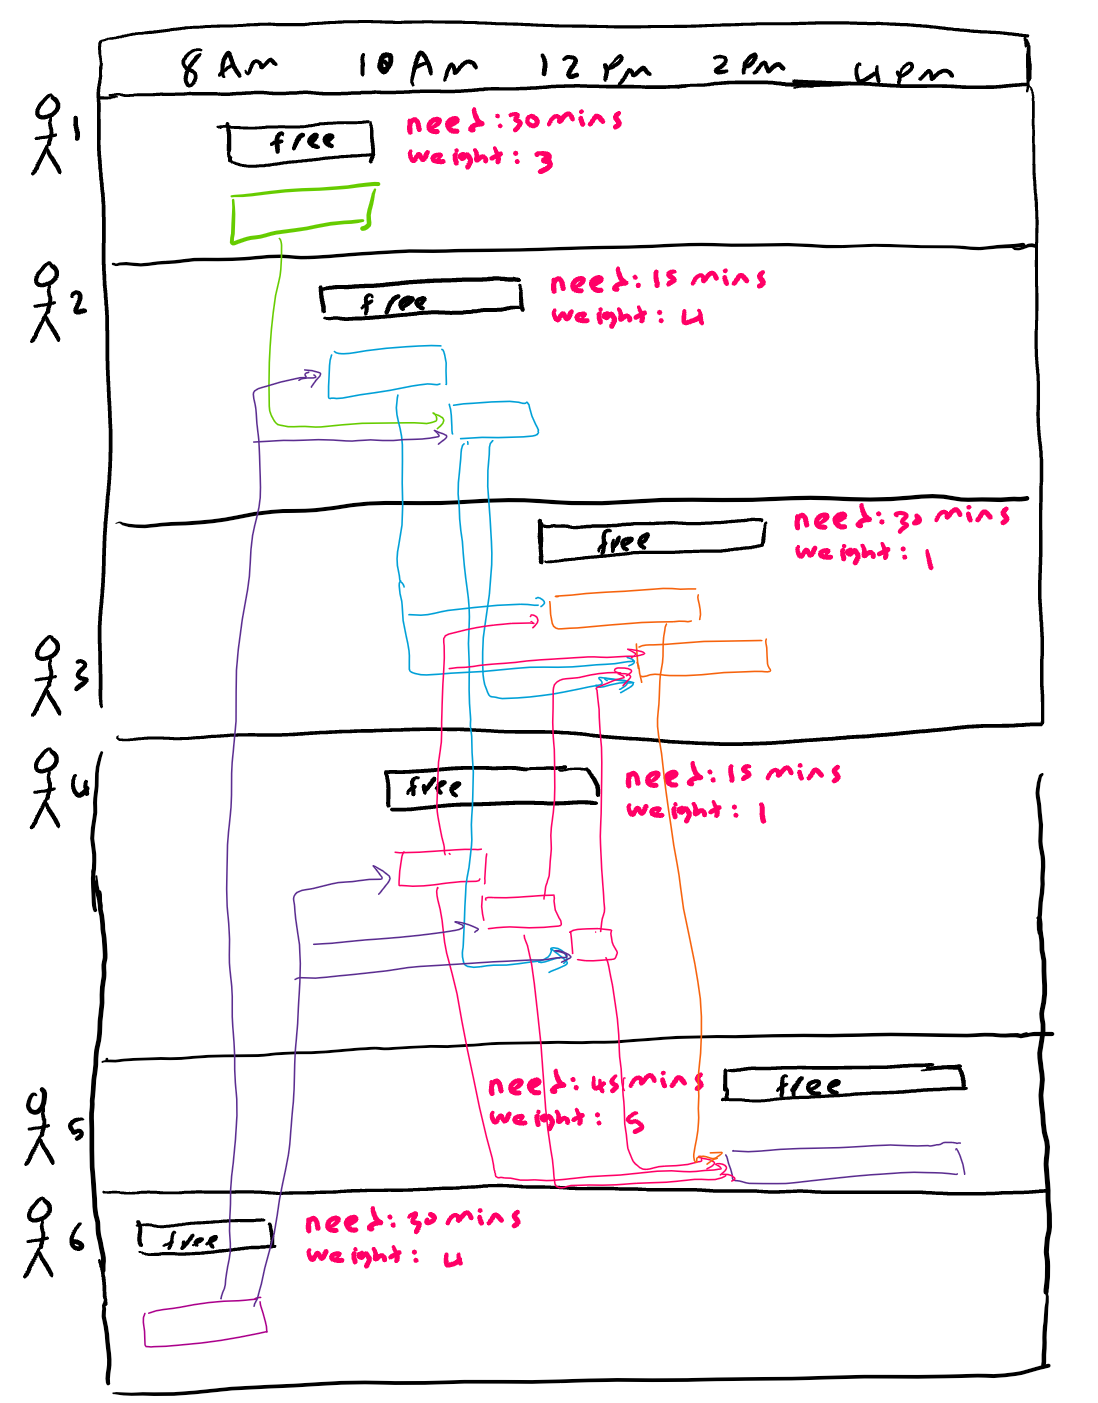 8 AM 10 AM 12 PM 2 PM 4 PM
1
free
need: 30 mins
weight: 3
2
free
need: 15 mins
weight: 4
3
free
need: 30 mins
weight: 1
4
free
need: 15 mins
weight: 1
5
need: 45 mins
weight: 5
free
6
free
need: 30 mins
weight: 4